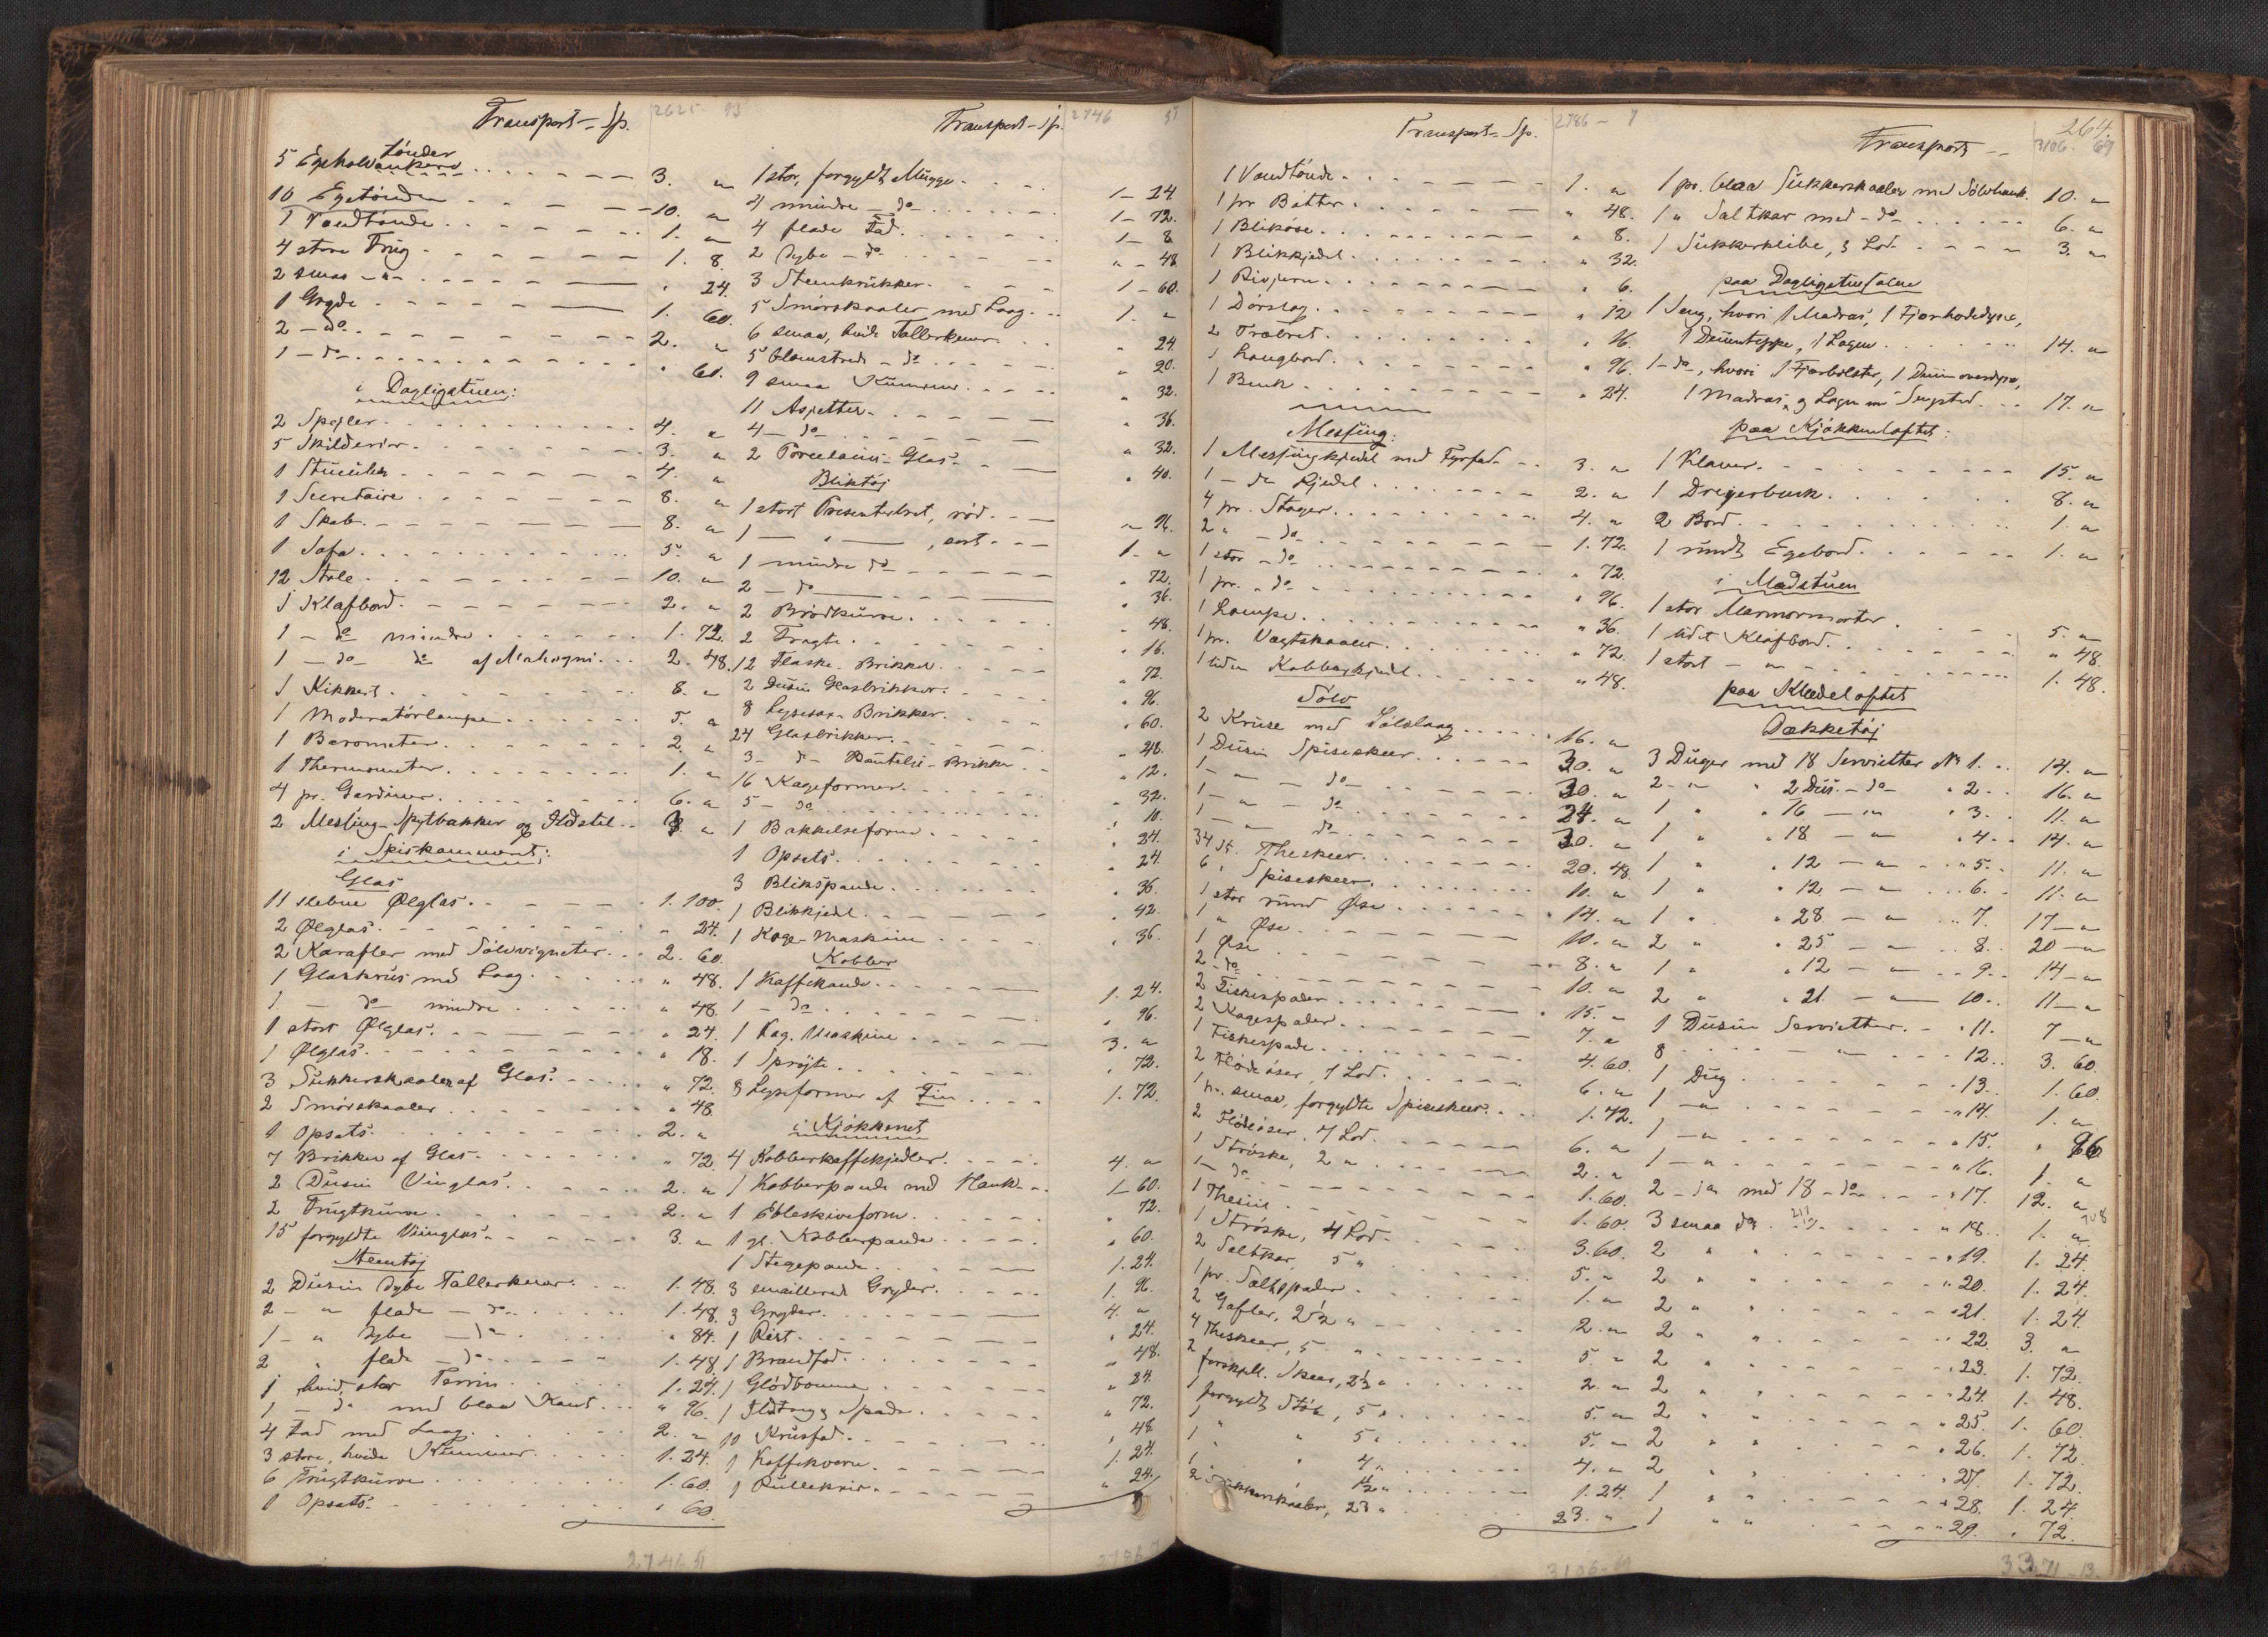 Transport – Sp. 2625 13
5 Egeholvankere tønder 3. "
10 Egetønder 10. "
1 Vandtønde 1. "
4 store Trug 1. 8.
2 smaa – " – " 24.
1 Gryde 1. 60.
2 – do 2. "
1 – do " 60.
i Dagligstuen:
2 Spejler 4. "
5 Skilderier 3. "
1 Stueuhr 4. "
1 Secretaire 8. "
1 Skab 8. "
1 Sofa 5. "
12 Stole 10. "
1 Klafbord 2. "
1 – do mindre 1. 72.
1 – do – do af Mahogni 2. 48.
1 Kikkert 8. "
1 Moderatørlampe 5. "
1 Barometer 2. "
1 Thermometer 1. "
4 pr. Gardiner 6. "
2 Messing-Spytbakker og Ildstel 3. "
i Spiskammeret:
Glas
11 slebne Ølglas 1. 100.
2 Ølglas " 24.
2 Karafler med Sølvvignetter 2. 60.
1 Glaskrus med Laag " 48.
1 – do mindre " 48.
1 stort Ølglas " 24.
1 Ølglas " 18.
3 Sukkerskaaler af Glas " 72.
2 Smørskaaler " 48
1 Opsats 2. "
7 Brikker af Glas " 72.
2 Dusin Vinglas 2. "
2 Frugtkurve 2. "
15 forgyldte Viinglas 3. "
Steentøj
2 Dusin dybe Tallerkener 1. 48.
2 – " flade – do 1. 48.
1 – " dybe – do " 84.
2 " flade – do 1. 48.
1 hvid, stor Terrin 1. 24.
1 – do med blaa Kant " 96.
4 Fad med Laag 2. "
3 store, hvide Kummer 1. 24.
6 Frugtkurve 1. 60.
1 Opsats " 60.
2746 51
Transport – Sp. 2746 51
1 stor, forgyldt Mugge 1 – 24
4 mindre – do 1 – 72.
4 flade Fad 1 – 8
2 dybe – do " – 48
3 Steenkrukker 1 – 60.
5 Smørskaaler med Laag 1. "
6 smaa, hvide Tallerkener " 24.
5 blomstrede – do " 20.
9 smaa Kummer " 32.
11 Asjetter " 36.
4 – do " 32.
2 Porcelains-Glas " 40.
Bliktøj
1 stort Presenterbret, rød " 96.
1 — " — , sort 1. "
1 mindre do " 72.
2 – do " 36.
2 Brødkurve " 48.
2 Tragte " 16.
12 Flaske-Brikker " 72.
2 Dusin Glasbrikker " 96.
8 Lysesax-Brikker " 60.
24 Glasbrikker " 48.
3 – do – Bouteille-Brikker " 12.
16 Kageformer " 32.
5 – do " 10.
1 Bakkelseform " 24.
1 Opsats " 24.
3 Blikspande " 36.
1 Blikkjedel " 42.
1 Koge-Maskine " 36.
Kobber
1 Kaffekande 1. 24.
1 – do " 96.
1 Kag. Maskine 3. "
1 Sprøjte " 72.
8 Lyseformer af Tin 1. 72.
i Kjøkkenet
4 Kobberkaffekjedler 4. "
1 Kobberpande med Hank 1 – 60.
1 Ebleskiveform " 72.
1 gl. Kobberpande " 60.
1 Stegepande 1. 24.
3 emaillerede Gryder 1. 96.
3 Gryder 4. "
1 Rist " 24.
1 Brandfod " 48.
1 Glødtonne " 24.
1 Ildtang & Spade " 72.
10 Krusfad " 48.
1 Kaffekvern 1. 24.
1 Rullekniv " 24.
2786 7
Transport – Sp. 2786 – 7
1 Vandtønde 1. "
1 pr Bøtter " 48.
1 Blikøse " 8.
1 Blikkjedel " 32.
1 Rivjern " 6.
1 Dørslag " 12
2 Træbret " 16.
1 Langbord " 96.
1 Benk " 24.
Messing:
1 Messingkjedel med Fyrfad 3. "
1 – do Kjedel 2. "
4 pr. Stager 4. "
2 " – do 1. 72.
1 stor – do " 72.
1 pr. – do " 96.
1 Lampe " 36.
1 pr. Vægtskaaler " 72.
1 liden Kobberkjedel " 48.
Sølv
2 Kruse med Sølvlaag 16. "
1 Dusin Spiseskeer 30. "
1 – " – do 30. "
1 – " – do 24. "
1 – " do 30. "
34 st. Theskeer 20. 48.
6 " Spiseskeer 10. "
1 stor rund Øse 14. "
1 " Øse 10. "
1 Øse 8. "
2 – do 10. "
2 Fiskespader 15. "
2 Kagespader 7. "
1 Fiskespade 4. 60.
2 Flødeøser, 7 Lod 6. "
1 pr. smaa, forgyldte Spiseskeer 1. 72.
2 Flødeøser, 7 Lod 6. "
1 Strøske, 2 " 2. "
1 – do 1. 60.
1 Thesiil 1. 60.
1 Strøske, 4 Lod 3. 60.
2 Saltkar, 5 " 5. "
1 pr. Saltspader 1. "
2 Gafler, 2½ " 2. "
4 Theskeer, 5 " 5. "
2 forskjell. Skeer, 2½ " 2. "
1 forgyldt Støb, 5 " 5. "
1 " " 5 " 5. "
1 " " 4 " 4. "
1 " 1½ " 1. 24.
2 Sukkerskaaler, 23 " 23. "
3106 – 69
264.
Transport – – 3106. 69
1 pr. blaa Sukkerskaaler med Sølvhank 10. "
1 " Saltkar med – do 6. "
1 Sukkerklibe, 3 Lod 3. "
paa Dagligstuesalen
1 Seng, hvori 1 Madras, 1 Fjærhodedyne,
1 Duunteppe, 1 Lagen 14. "
1 – do –, hvori 1 Fjærbolster, 1 Duunoverdyne,
1 Madras, og Lagen m Sengsted 17. "
paa Kjøkkenloftet:
1 Klaver 15. "
1 Drejerbenk 8. "
2 Bord 1. "
1 rundt Egebord 1. "
i Madstuen
1 stor Marmormorter 5. "
1 lidet Klafbord " 48.
1 stort – " – 1. 48.
paa Klædeloftet
Dækketøj
3 Duger med 18 Servietter No 1. 14. "
2 – " " 2 Dus. – do " 2 16. "
1 " " 16 – " " 3. 11. "
1 " " 18 – " " 4 14. "
1 " " 12 – " " 5. 11. "
1 " " 12 – " " 6. 11. "
1 " " 28 – " " 7. 17 – "
2 " " 25 – " " 8. 20 – "
1 " " 12 – " " 9. 14 – "
2 " " 21 – " 10. 11 – "
1 Dusin Servietter " 11. 7 – "
8 – " 12. 3. 60.
1 Dug " 13. 1. 60.
1 – " " 14. 1. "
1 – " " 15. " 96
1 – " " 16. 1. "
2 – do med 18 – do " 17. 12. "
3 smaa do " 18. 1. "
2 " " " 19. 1. 24.
2 " " " 20. 1. 24.
2 " " " 21. 1. 24.
2 " " " 22. 3. "
2 " " " 23. 1. 72.
2 " " " 24. 1. 48.
2 " " " 25. 1. 60.
2 " " " 26. 1. 72.
2 " " " 27. 1. 72.
1 " " " 28. 1. 24.
1 " " " 29. " 72.
3371 – 13.